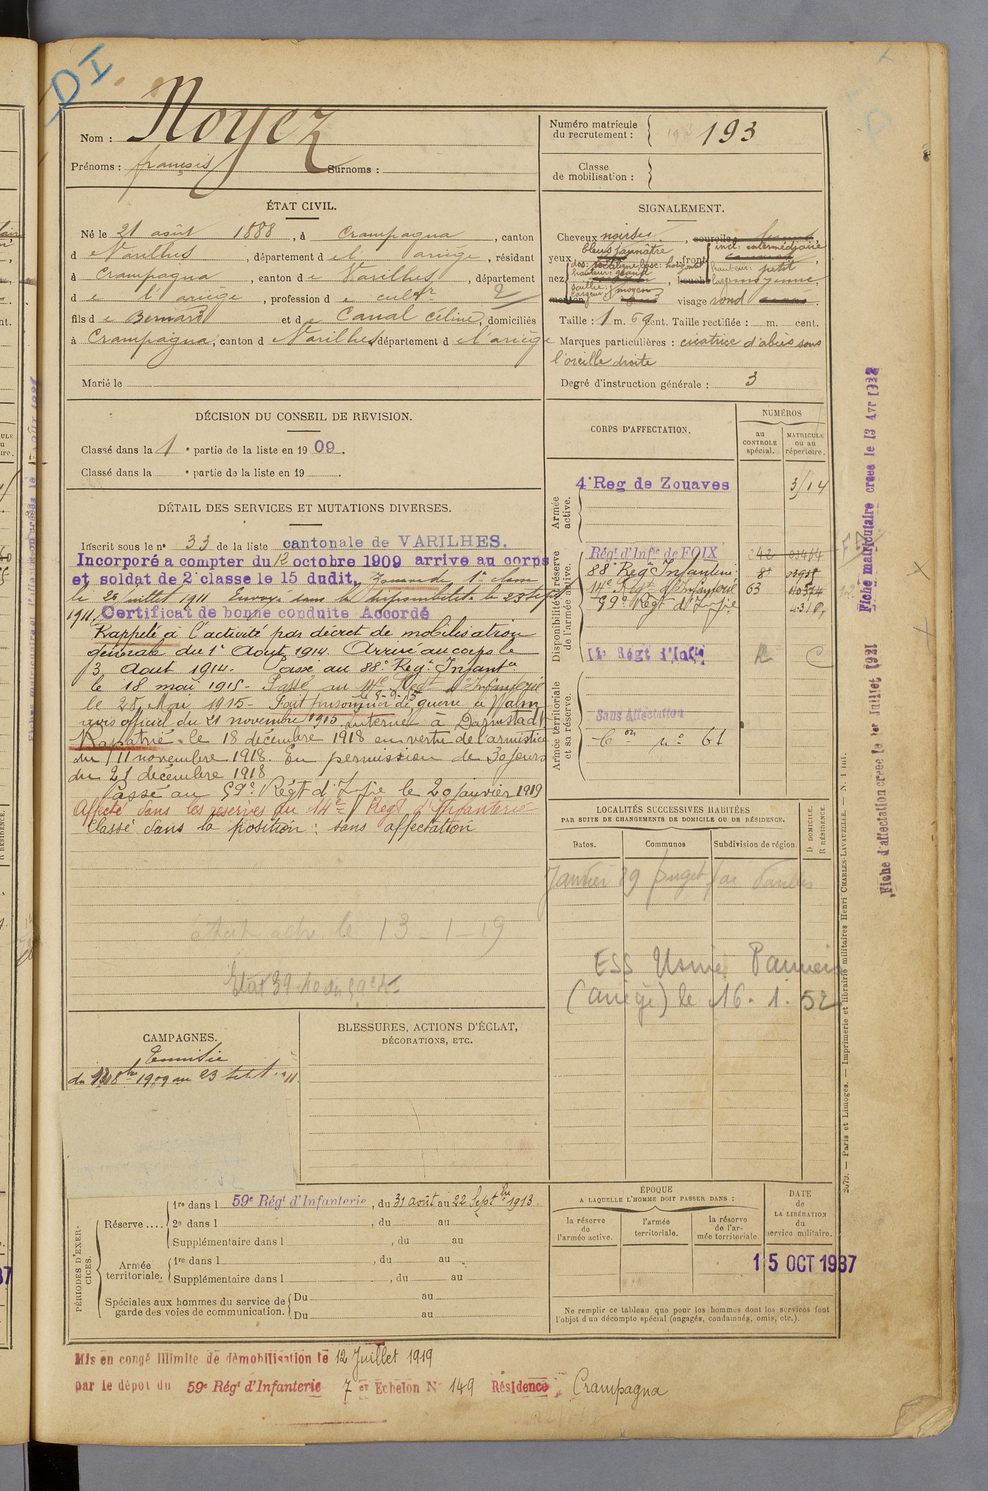 DI
Nom : Noyez
Prénoms : françois Surnoms :
Numéro matricule du recrutement : 193
Classe de mobilisation :
ÉTAT CIVIL.
Né le 21 août 1888, à Crampagna, canton
de Varilhes, département de l'ariège, résidant
à Crampagna, canton de Varilhes, département
de l'ariège, profession de cultr 2
fils de Bernard et de Canal céline, domiciliés
à Crampagna, canton de Varilhes département de l'ariège
Marié le
SIGNALEMENT.
Cheveux noirs
yeux bleus jaunâtre, front incl. intermédiaire
hauteur: petit
nez dos: rectiligne base: horizont
hauteur: grand
saillie: moyen
largeur: moyenne
visage rond
Taille : 1 m. 69 cent. Taille rectifiée : m. cent.
Marques particulières : cicatrice d'abcès sous
l'oreille droite
Degré d'instruction générale : 3
DÉCISION DU CONSEIL DE REVISION.
Classé dans la 1e partie de la liste en 1909.
Classé dans la e partie de la liste en 19
DÉTAIL DES SERVICES ET MUTATIONS DIVERSES.
Inscrit sous le no 33 de la liste cantonale de VARILHES.
Incorporé a compter du 12 octobre 1909 arrive au corps
et soldat de 2e classe le 15 dudit, Zouave de 1e classe
le 23 juillet 1911 Envoyé dans la disponibilité le 23 Sept
1911, Certificat de bonne conduite Accordé
Rappelé à l'activité par décret de mobilisation
générale du 1er Août 1914. Arrivé au corps le
3 Aout 1914. Passé au 88e Regt Infantie
le 18 mai 1915- Passé au 14e Regt d'Infanterie
le 28 Mai 1915- Fait prisonnier de guerre à
avis officiel du 21 novembre 1915 interné à Darmstadt
Rapatrié le 18 décembre 1918 en vertu de l'armistice
du 11 novembre 1918. En permission de 30 jours
du 21 décembre 1918
Passé au 59e Régt d'Ifie le 20 janvier 1919
Affecté dans les réserves du 14e Regt d'Infanterie
Classé dans la position : sans affectation
le 13-1-19
CORPS D'AFFECTATION.
NUMÉROS
au contrôle spécial.
MATRICULE ou au répertoire.
Armée active.
4e Reg de Zouaves 3/14
Disponibilité et réserve de l'armée active.
Régt d'Infie de FOIX
88e Regt Infanterie
14e Regt d'Infanterie 63
59e Regt d'Ifie
14e Régt d'Infie R
Armée territoriale et sa réserve.
Sans Affectation
Con no 61
LOCALITÉS SUCCESSIVES HABITÉES
PAR SUITE DE CHANGEMENTS DE DOMICILE OU DE RÉSIDENCE.
Dates. Communes Subdivision de région. D DOMICILE. R RÉSIDENCE.
Janvier 39
ESS Usine Pamiers
(ariège) le 16. 1. 52
CAMPAGNES.
Tunisie
du 12 8bre 1909 au 23 sept 1911
BLESSURES, ACTIONS D'ÉCLAT,
DÉCORATIONS, ETC.
PÉRIODES D'EXERCICES.
Réserve .... 1re dans l 59e Régt d'Infanterie, du 31 août au 22 Septbre 1913.
2e dans l , du au
Supplémentaire dans l , du au
Armée territoriale. 1re dans l , du au
Supplémentaire dans l , du au
Spéciales aux hommes du service de garde des voies de communication. Du au
Du au
ÉPOQUE
A LAQUELLE L'HOMME DOIT PASSER DANS :
la réserve de l'armée active.
l'armée territoriale.
la réserve de l'armée territoriale
DATE de LA LIBÉRATION du service militaire.
15 OCT 1937
Ne remplir ce tableau que pour les hommes dont les services font
l'objet d'un décompte spécial (engagés, condamnés, omis, etc.).
Mis en congé illimité de démobilisation le 12 Juillet 1919
par le dépôt du 59e Régt d'Infanterie 7e Echelon No 149 Résidence Crampagna
Fiche d'affectation créée le 1er Juillet 1921
2079. — Paris et Limoges. — Imprimerie et librairie militaires Henri CHARLES-LAVAUZELLE. — N. 1 int.